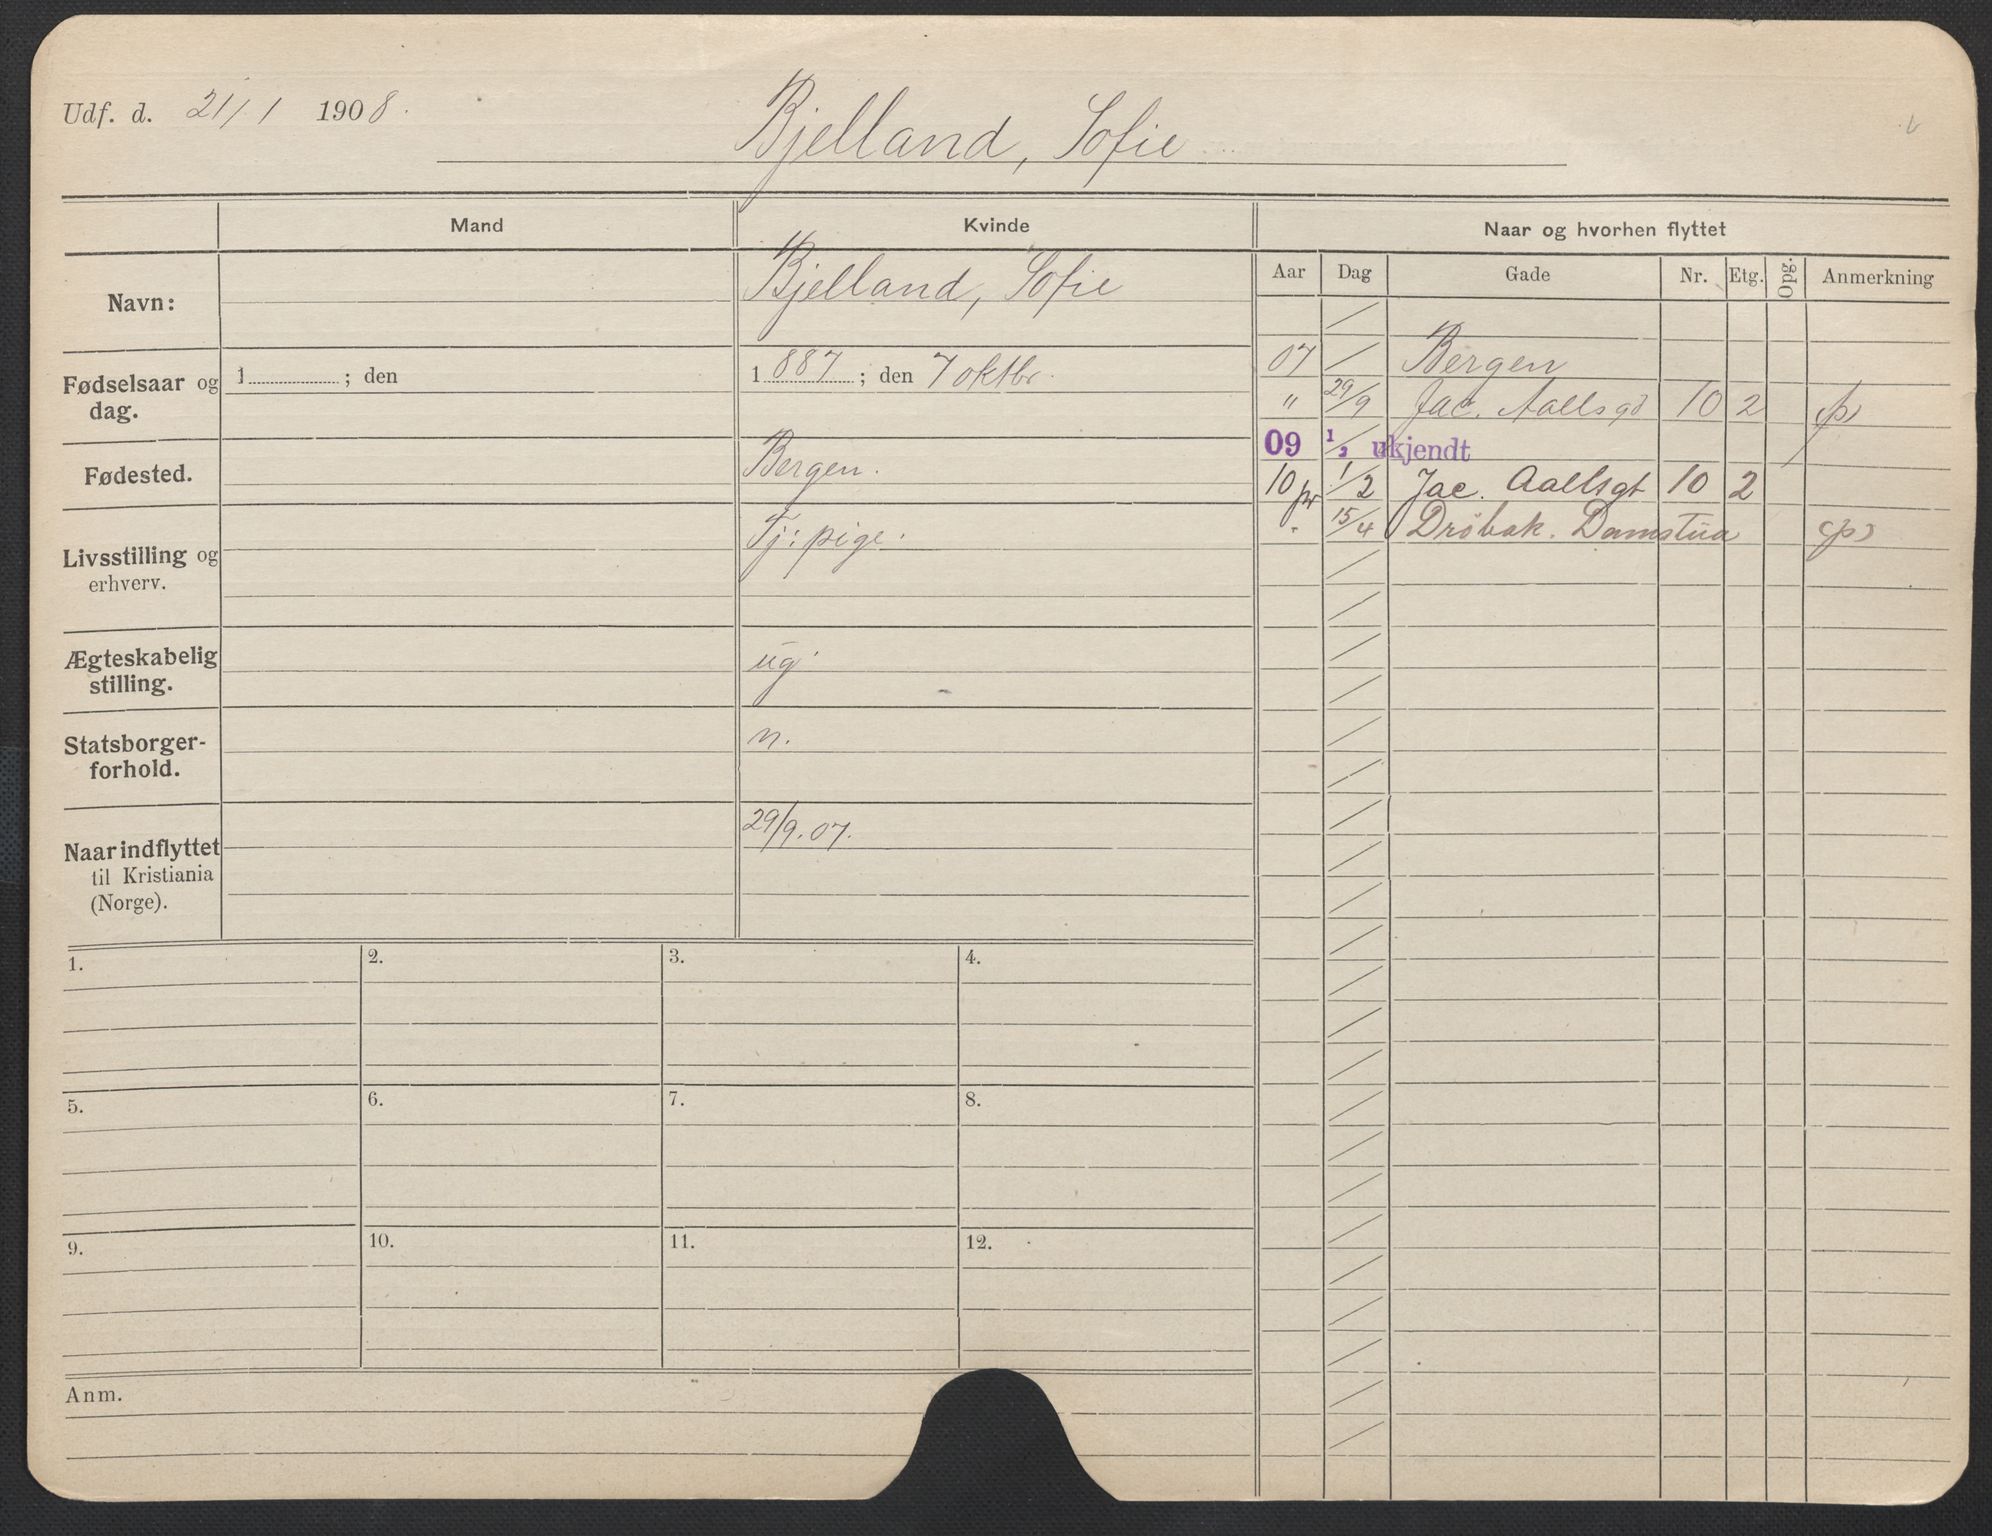 Udf. d. 21/1 1908.
Bjelland, Sofie
Mand Kvinde Naar og hvorhen flyttet
Aar Dag Gade Nr. Etg. Opg. Anmerkning
Navn: Bjelland, Sofie
Fødselsaar og dag. 1 ; den 1887 ; den 7 oktbr.
Fødested. Bergen.
Livsstilling og erhverv. Tj: pige.
Ægteskabelig stilling. ug
Statsborger-forhold. n.
Naar indflyttet til Kristiania (Norge). 29/9.07.
07 Bergen
" 29/9 Jac. Aallsgd 10 2 (p)
09 1/2 ukjendt
10 pr 1/2 Jac. Aallsgt 10 2
" 15/4 Drøbak. Damstua (p)
1. 2. 3. 4.
5. 6. 7. 8.
9. 10. 11. 12.
Anm.